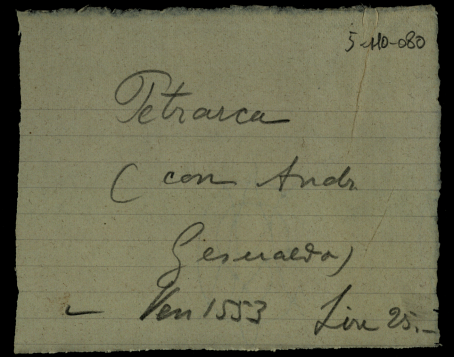 5-110-080
Petrarca
( con Andr.
Gesualdo)
- Ven 1553 Lire 25.-